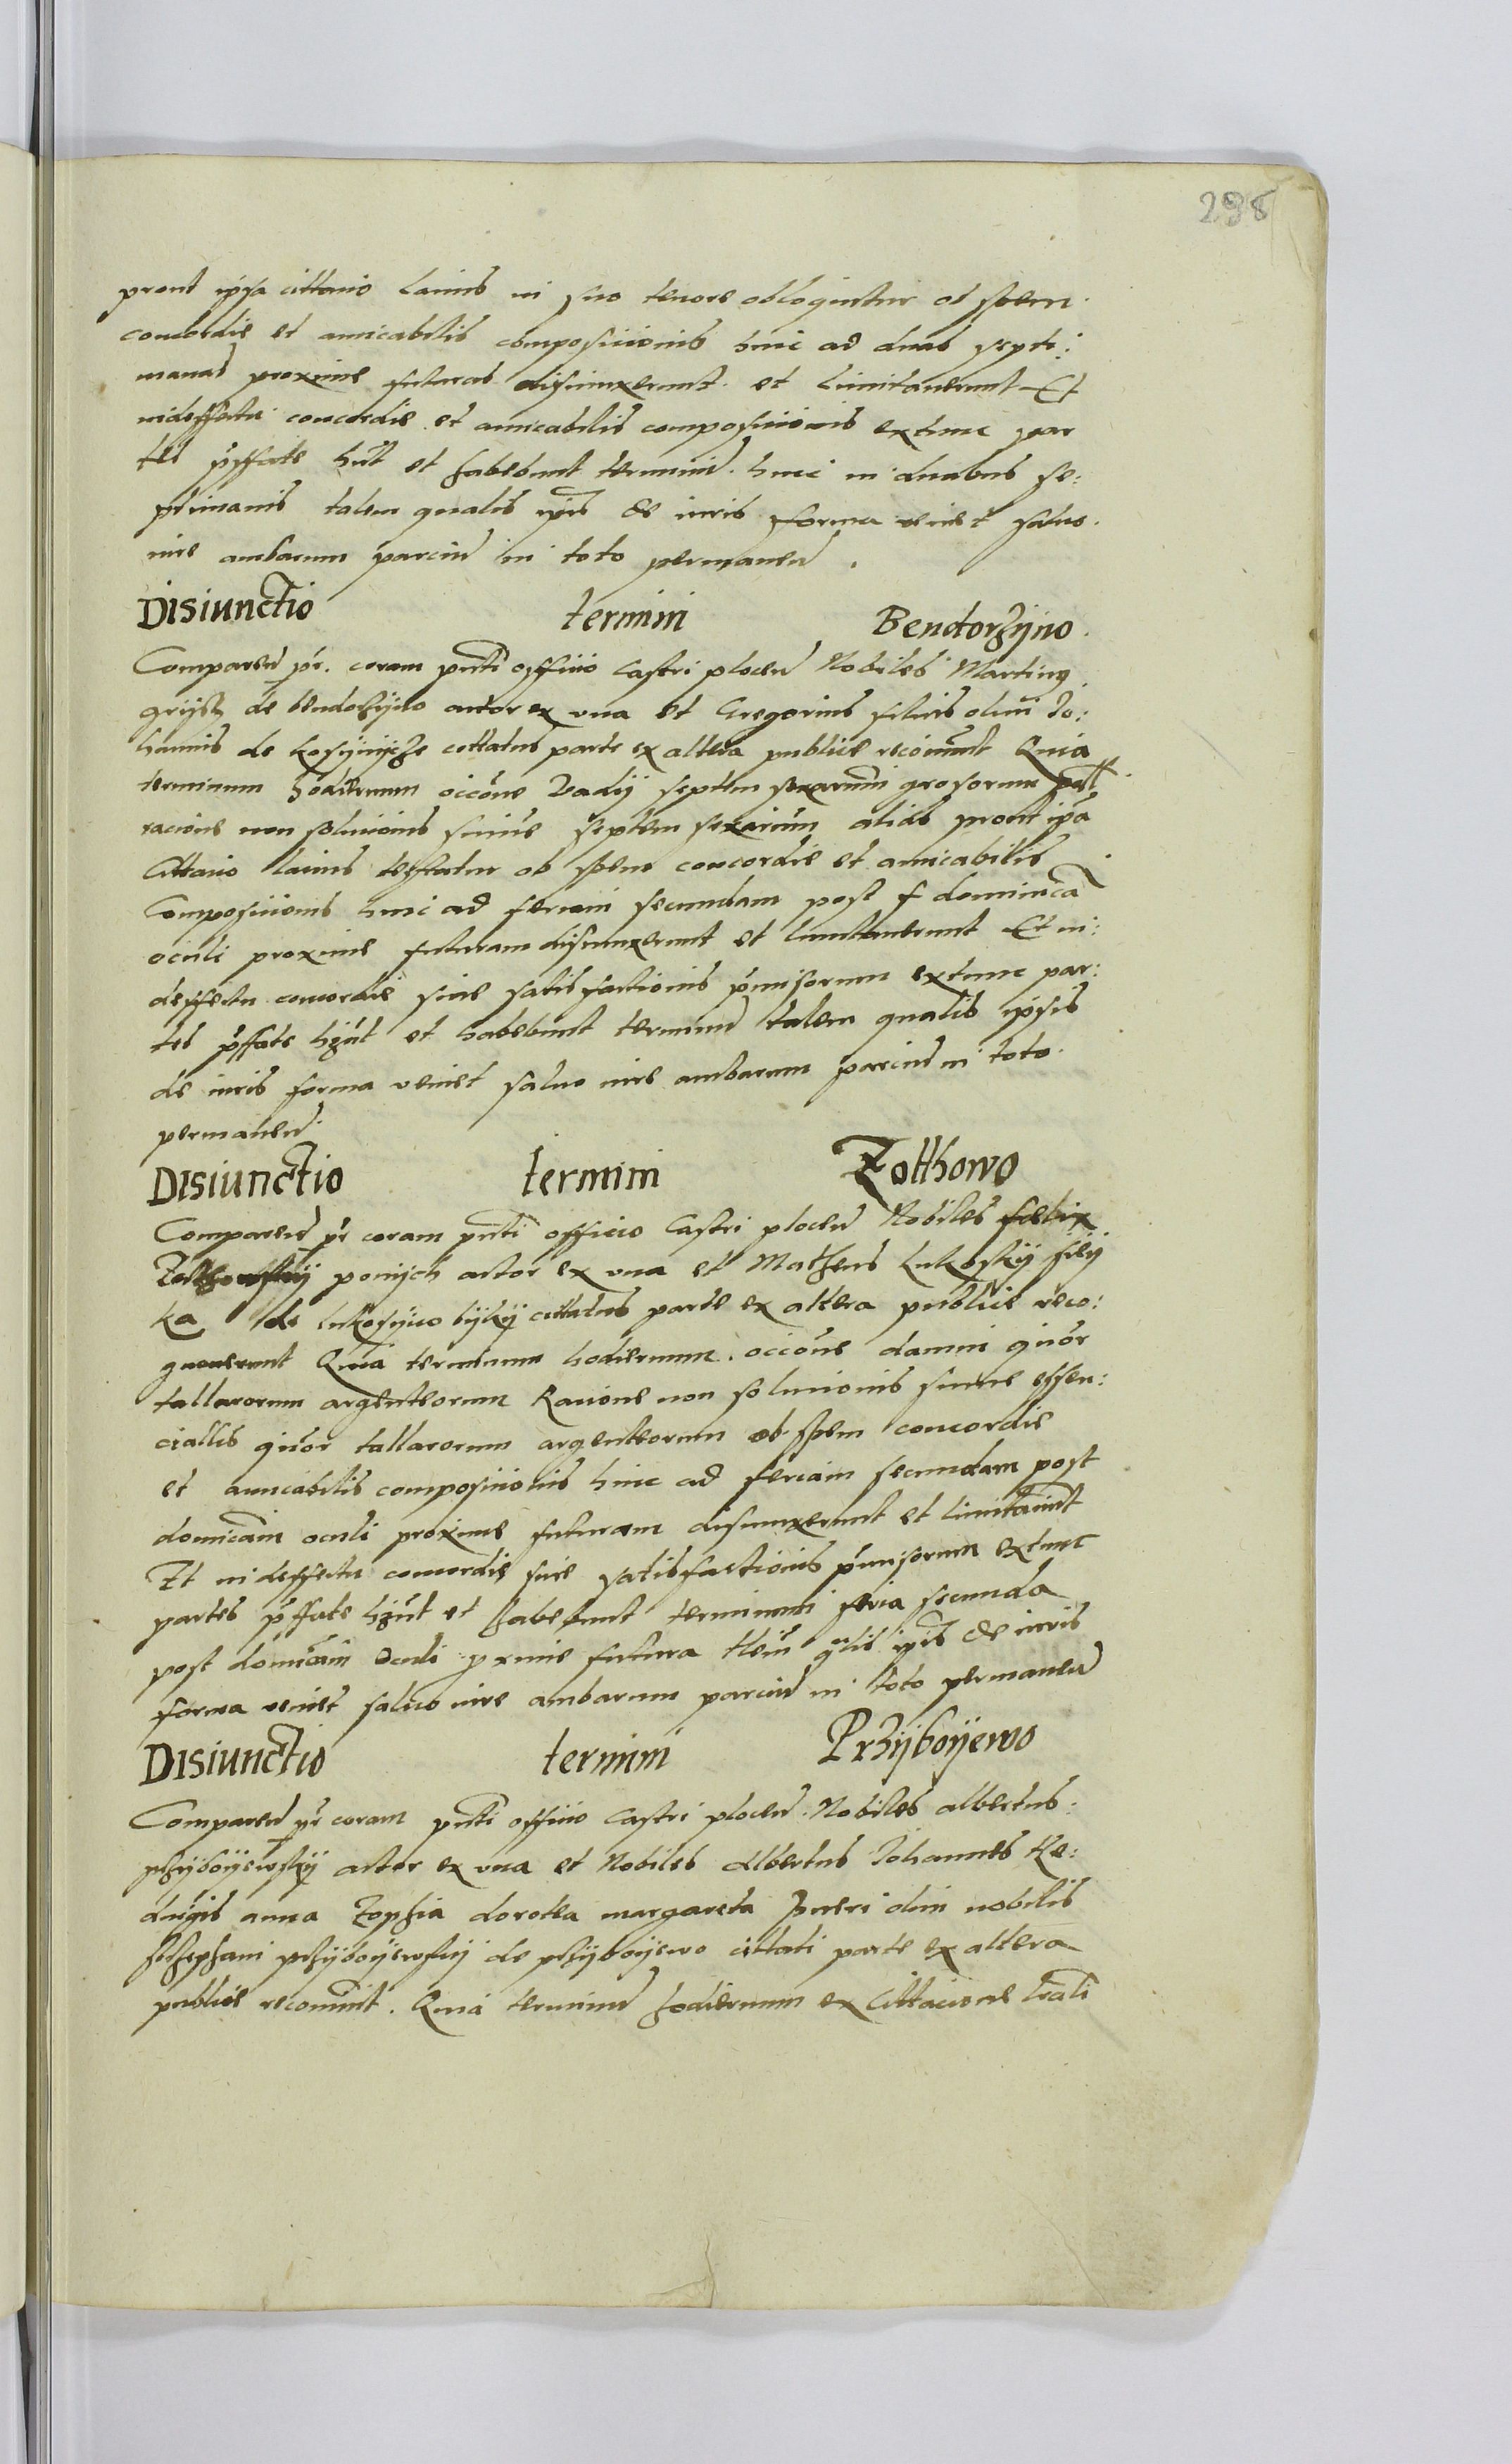 298
prout ipsa cittatio latius in suo tenore obloquitur ob spem
concordie et amicabilis compositionis hinc ad duas septi:
manas proxime futuras disiunxerunt et limitaverunt Et
in deffectu concordie et amicabilis compositionis extunc par
tes pffate hnt et habebunt terminu hinc in duabus se:
ptimanis talem qualis ipis de iuris forma veniet salvo
iure ambarum parciu in toto permanen
Disiunctio termini Bendorzijno
Comparen pr. coram pnti officio Castri plocen Nobiles Martinus
de bendozijno actor ex una et Gregorius filius olim Jo:
hannis de cittatus parte ex altera publice recoverunt Quia
terminum hodiernum occone Vadij septem sexarum grosorum
racione non solucionis summe septem sexarum alias prout ipa
Cittatio latius testatur ob spem concordie et amicabilis
Compositionis hinc ad feriam secundam post f dominica
oculi proxime futuram disiunxerunt et limitaverunt Et in:
deffectu concordie sive satisfactionis pmisorum extunc par:
tes pffate hnt et habebunt terminu talem qualis ipsis
de iuris forma veniet salvo iure ambarum parciu in toto
permanen
Disiunctio termini Zotthowo
Comparen pr coram pnti officio Castri plocen Nobiles felix
Zotthowskij actor ex una et Matheus Lukoskij filij
ka de lukosijwo cittatus parte ex altera publice reco:
gnoverunt Quia terminum hodiernum occone damni quor
tallarorum argenteorum Racione non solucionis summe essen:
ciallis quor tallarorum argenteorum ob spem concordie
et amicabilis compositionis hinc ad feriam secundam post
domicam oculi proxime futuram disiunxerunt et limitarunt
Et in deffectu concordie sive satisfactionis pmisorum extunc
partes pffate hnt et habebunt terminum feria secunda
post domicam Oculi pxime futura tlem qlis ipis de iuris
forma veniet salvo iure ambarum parciu in toto permanen
Disiunctio termini Przijboijewo
Comparen pr coram pnti officio Castri plocen Nobiles albertus
przijboijewskij actor ex una et Nobiles Albertus Johannes He:
duigis anna Zophia dorotea margareta pueri olim nobilis
Sthephani przijboijewskij de przijboijewo cittati parte ex altera
publice recoverunt. Quia terminu hodiernum ex Cittacione